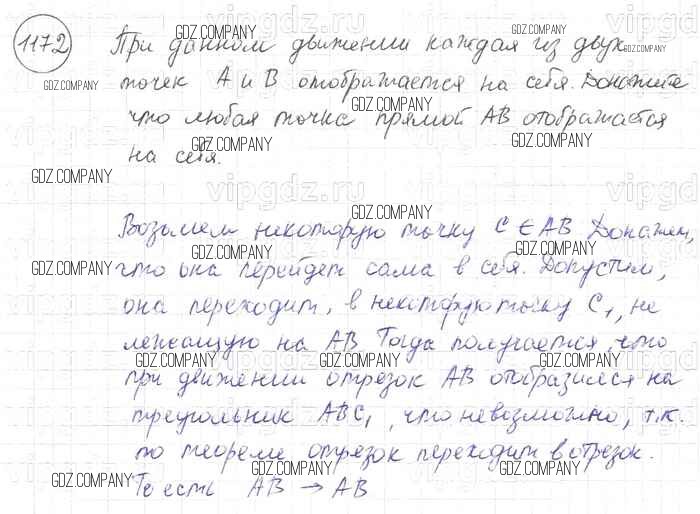 1172 При данном движении каждая из двух
точек A и B отображается на себя. Докажите
что любая точка прямой AB отображается
на себя.
Возьмем некоторую точку C ∈ AB Докажем,
что она перейдет сама в себя. Допустим,
она переходит, в некоторую точку C₁, не
лежащую на AB Тогда получается, что
при движении отрезок AB отобразился на
треугольник ABC₁, что невозможно, т.к.
по теореме отрезок переходит в отрезок.
То есть AB → AB
vipgdz.ru
GDZ.COMPANY